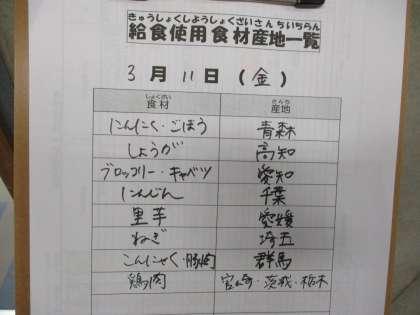 きゅうしょくしようしょくざいさんちいちらん
給食使用食材産地一覧
3月11日(金)
しょくざい さんち
食材 産地
にんにく・ごぼう 青森
しょうが 高知
ブロッコリー・キャベツ 愛知
にんじん 千葉
里芋 愛媛
ねぎ 埼玉
こんにゃく・豚肉 群馬
鶏肉 宮崎・茨城・栃木